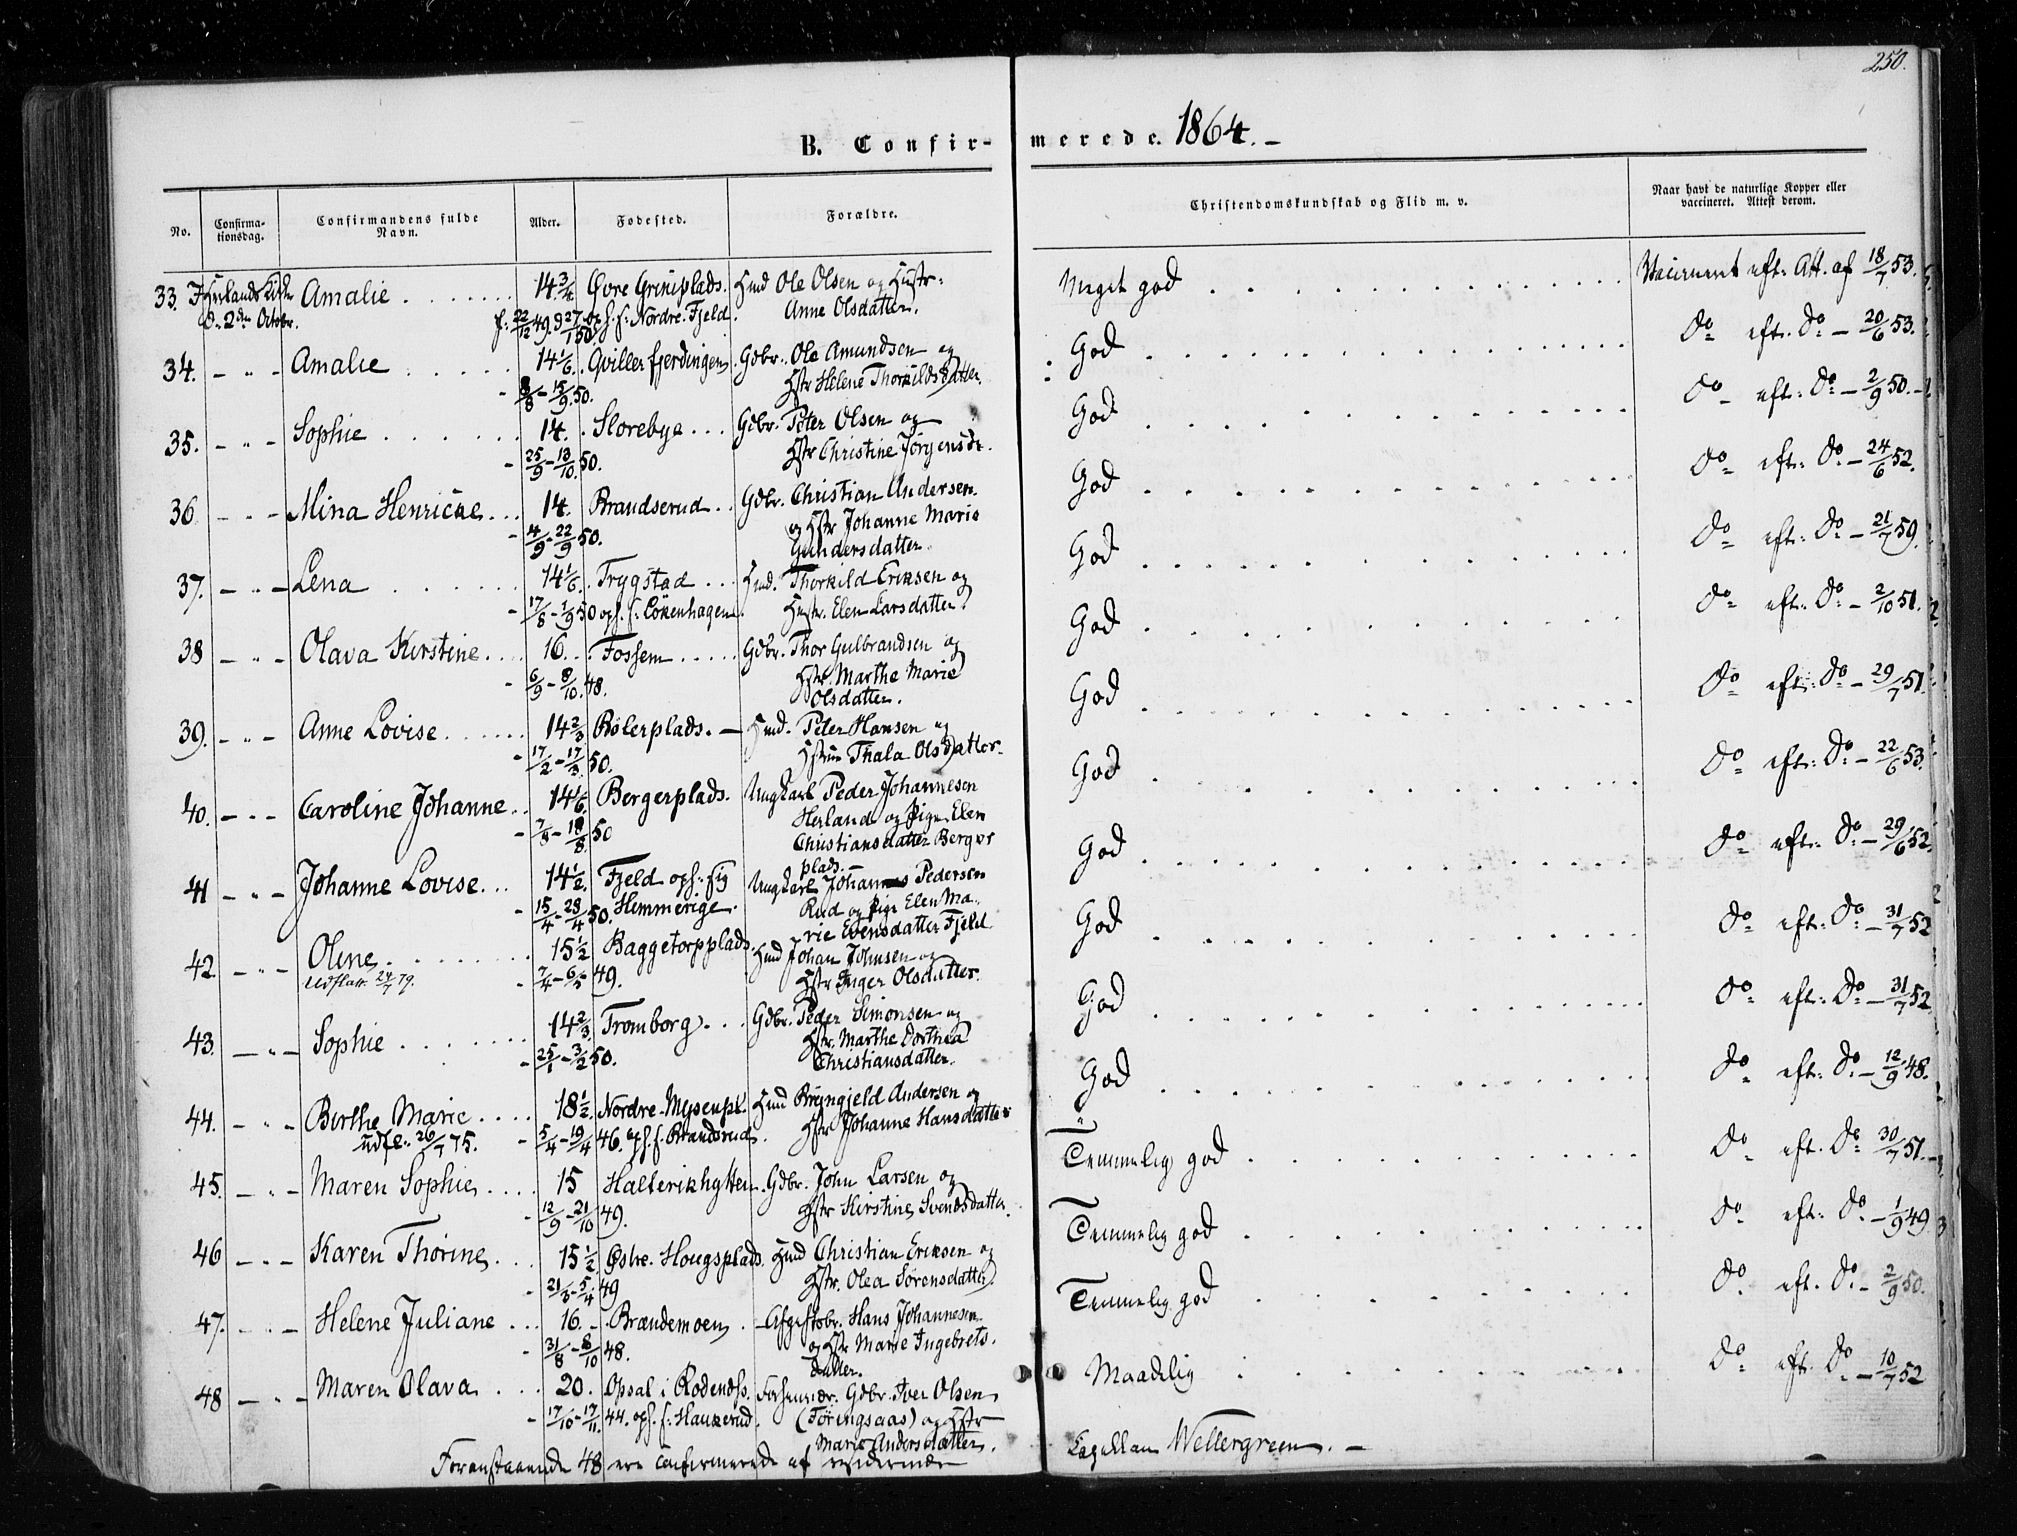 250.
B. Confir- merede. 1864. -
No.
Confirma-
tionsdag.
Confirmandens fulde
Navn.
Alder.
Fødested.
Forældre.
Christendomskundskab og Flid m. v.
Naar havt de naturlige Kopper eller
vaccineret. Attest derom.
33. Amalie 14 3/4 Øvre Griniplads. Hmd Ole Olsen og Hustr: Meget god eft: Att. af 18/7 53.
d: 2den Octobr. f: 22/12 49. 27/1 50. oph. f: Nordre-Fjeld. Anne Olsdatter.
34. - " - Amalie 14 1/6. Gviller fjerdingen. Gdbr. Ole Amundsen og God do eft: do - 20/6 53.
8/8 - 15/9 50. Hstr Helene Thorkildsdatter.
35. - " - Sophie 14. Slorebye Gdbr. Peter Olsen og God do eft: do - 2/9 50.
25/9 - 13/10 50. Hstr Christine Jørgensdr.
36. - " - Mina Henricae 14. Brandserud Gdbr. Christian Andersen God do eft: do - 24/6 52.
4/9 - 22/9 50. og Hstr Johanne Marie
Gundersdatter.
37. - " - Lena 14 1/6. Trygstad Hmd. Thorkild Eriksen og God do eft: do - 21/7 59.
17/8 - 1/9 50 oph. f: Lökenhagen. Hustr. Elen Larsdatter.
38 - " - Olava Kirstine 16. Fossem Gdbr. Thor Gulbrandsen og God do eft: do - 2/10 51.
6/9 - 8/10 48. Hstr. Marthe Marie
Olsdatter.
39. - " - Anne Lovise 14 2/3 Bölerplads. - Hmd. Peter Hansen og God do eft: do - 29/7 51.
17/2 - 17/3 50. Thala Olsdatter.
40. - " - Caroline Johanne 14 1/6. Bergerplads. Ungkarl Peder Johannesen God do eft: do - 22/6 53.
18/8 50 Herland og Pige Elen
Christiansdatter Berger
plads. -
41 - " - Johanne Lovise. 14 1/2. Fjeld oph: sig Ungkarl Johannes Pedersen God do eft: do - 29/6 52.
15/4 - 28/4 50. Hemmerige. Rud og Pige Elen Ma-
rie Evensdatter Fjeld
42. - " - Oline 15 1/2 Baggetorpplads. Hmd Johan Johnsen og God do eft: do - 31/7 52
24/7 79. 7/4 - 6/5 49. Hstr Inger Olsdatter.
43. - " - Sophie 14 2/3 Tromborg. Gdbr. Peder Simonsen og God do eft: do - 31/7 52
25/1 - 3/2 50. Hstr. Marthe Dorthea
Christiansdatter.
44. - " - Berthe Marie 18 1/2. Nordre-Mysenpl. Hmd Bryngjeld Andersen og God do eft: do - 12/9 48.
udfl: 26/7 75. 5/4 - 19/4 46. oph. f: Brandsrud. Hstr Johanne Hansdatter
45. - " - Maren Sophie 15 Halterikhytten. Gdbr. John Larsen og Temmelig god do eft. do 30/7 51.
12/9 - 21/10 49. Hstr Kirstine Svendsdatter.
46 - " - Karen Thorine 15 1/2 Østre. Hougsplads. Hmd Christian Eriksen og Temmelig god do eft: do - 1/9 49
21/3 - 5/4 49 Hstr. Olea Sørensdatter
47. - " - Helene Juliane 16. Brændemoen Afgiftsbr. Hans Johannesen Temmelig god do eft: do - 2/9 50.
31/8 - 8/10 48. og Hstr Marie Ingebrets-
datter.
48 - " - Maren Olava 20. Opsal i Rodenæs. Gdbr. Iver Olsen Maadelig do eft. do - 10/7 52
17/10 - 17/11 44. oph. f: Haukerud (Föringsaas) og Hstr
Marie Andersdatter.
Foranstaaende 48 ere confirmerede af residerende Capellan Wettergreen. -